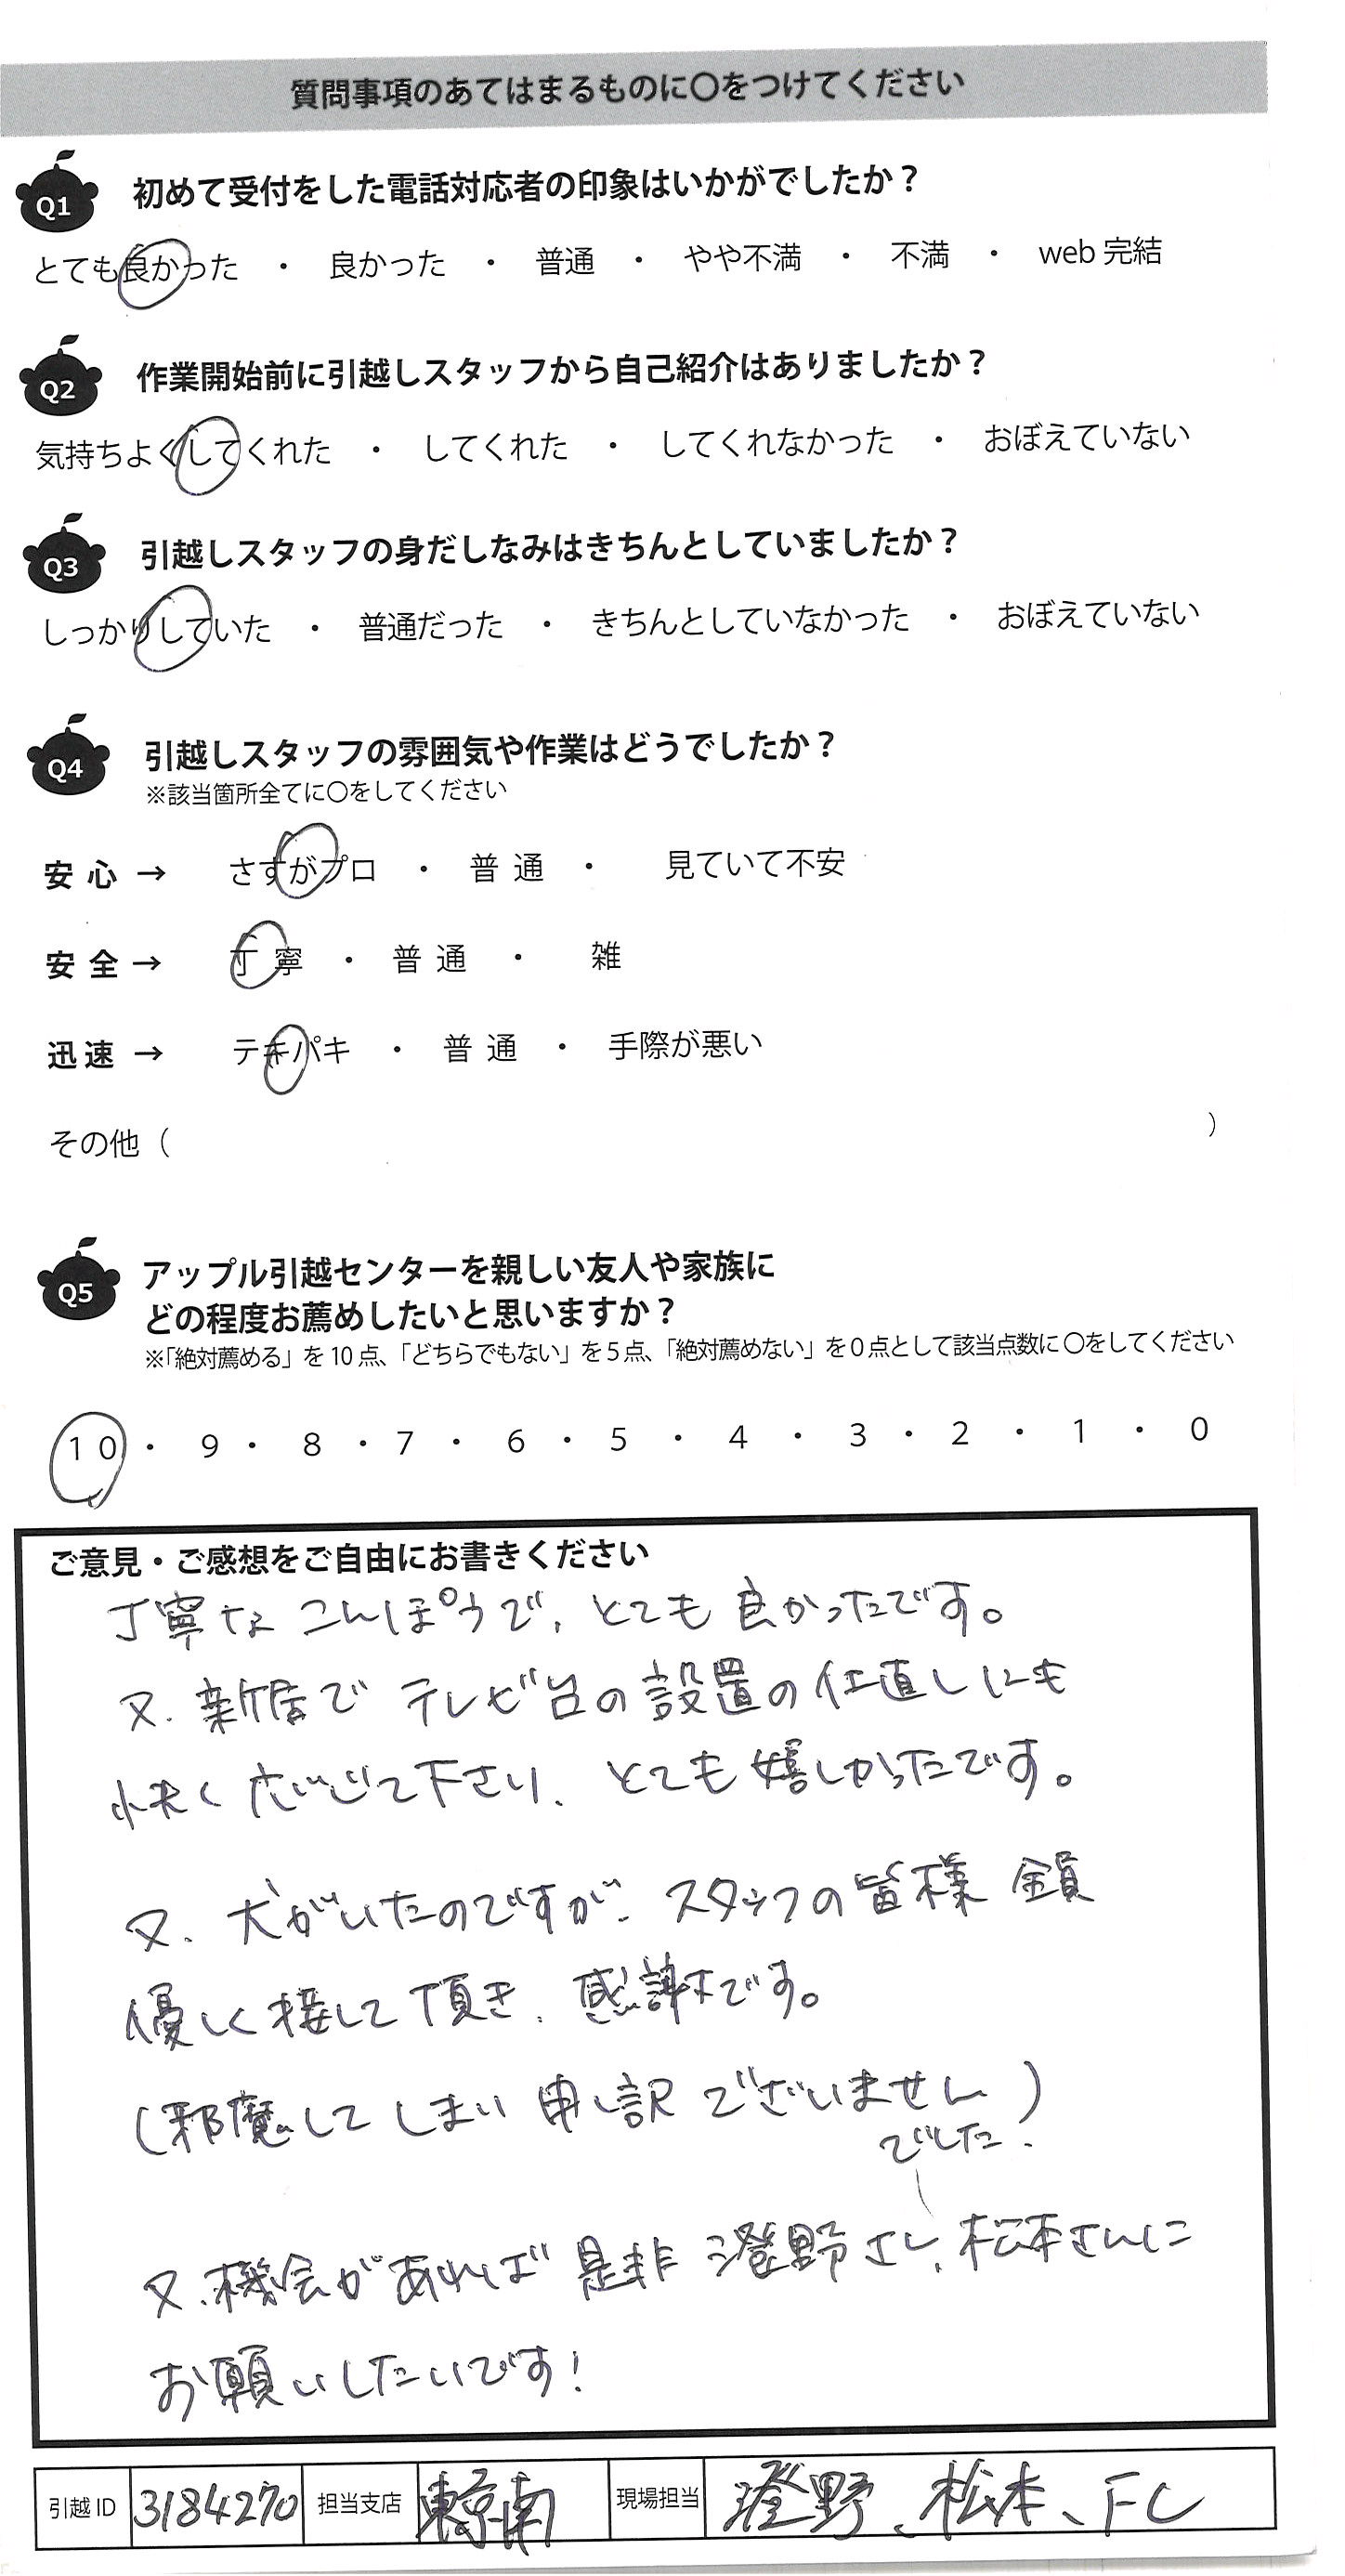 質問事項のあてはまるものに〇をつけてください
Q1 初めて受付をした電話対応者の印象はいかがでしたか？
とても良かった ・ 良かった ・ 普通 ・ やや不満 ・ 不満 ・ web 完結
Q2 作業開始前に引越しスタッフから自己紹介はありましたか？
気持ちよくしてくれた ・ してくれた ・ してくれなかった ・ おぼえていない
Q3 引越しスタッフの身だしなみはきちんとしていましたか？
しっかりしていた ・ 普通だった ・ きちんとしていなかった ・ おぼえていない
Q4 引越しスタッフの雰囲気や作業はどうでしたか？
※該当箇所全てに〇をしてください
安心 → さすがプロ ・ 普通 ・ 見ていて不安
安全 → 丁寧 ・ 普通 ・ 雑
迅速 → テキパキ ・ 普通 ・ 手際が悪い
その他（ ）
Q5 アップル引越センターを親しい友人や家族に
どの程度お薦めしたいと思いますか？
※「絶対薦める」を10点、「どちらでもない」を5点、「絶対薦めない」を0点として該当点数に〇をしてください
10 ・ 9 ・ 8 ・ 7 ・ 6 ・ 5 ・ 4 ・ 3 ・ 2 ・ 1 ・ 0
ご意見・ご感想をご自由にお書きください
丁寧なこんぽうで、とても良かったです。
又、新居でテレビ台の設置の仕直しにも
快く応じて下さり、とても嬉しかったです。
又、犬がいたのですが、スタッフの皆様 全員
優しく接して頂き、感謝です。
(邪魔してしまい申し訳ございません)
でした.
又、機会があれば是非 澄野さん、松本さんに
お願いしたいです!
引越ID 3184270 担当支店 東京南 現場担当 澄野、松本、FC